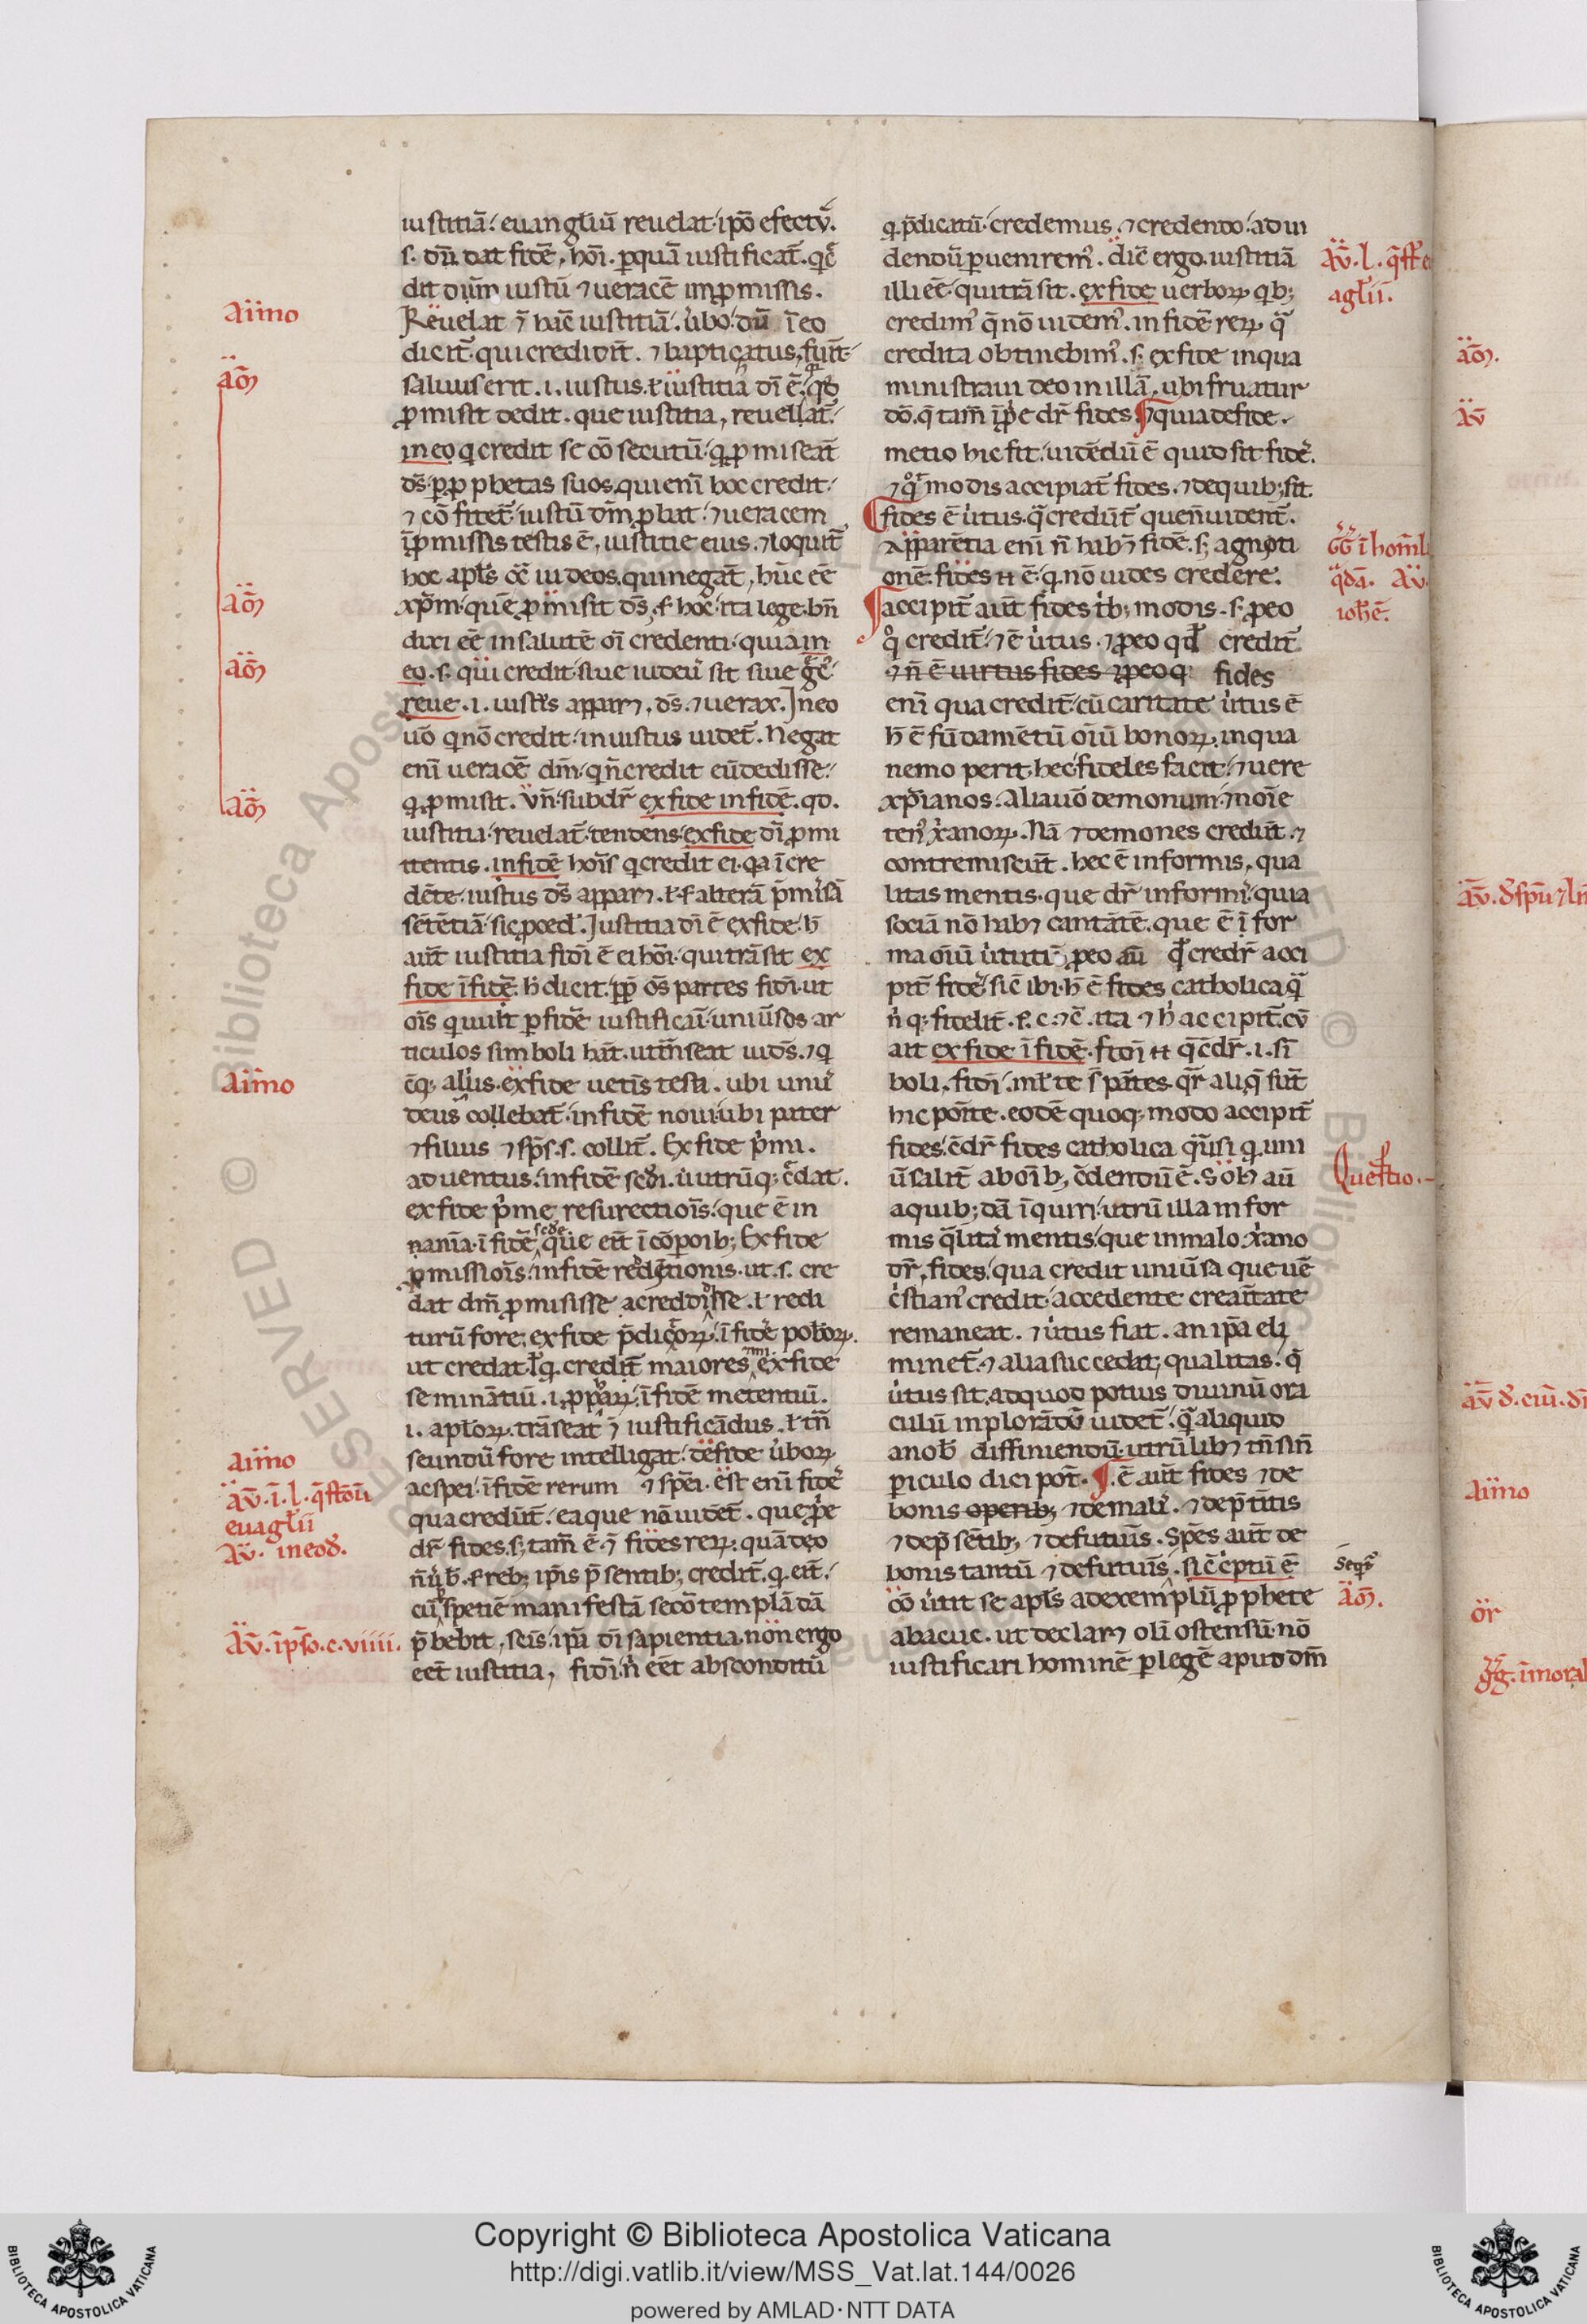 iustitiā. euangłiū reuelat ipō efectū.
s. dū dat fidē, hōi. ꝑquā iustificat̄.
dit dūm iustū ⁊ ueracē inꝓmissis.
Reuelat ī hāc iustitiā. ī eo
dicit̄ qui crediderit. ⁊ baptiçatus fuīt
saluus erit .i. iustus. ł iustitia dī ē
ꝓmisit dedit. que iustitia, reuellat̄
in eo q credit se cōsecutū ꝓmiserat̄
ds̄. ꝑ ꝓphetas suos. qui enī hoc credit
⁊ cōfitet̄ iustū dm̄ ꝓbat. ⁊ ueracem
īꝓmissis testis ē, iustitie eius. ⁊ loquit̄
hoc apłs iudeos. qui negāt, hūc eē
xp̄m. quē ꝓmisit ds̄. ita lege. bn̄
dixi eē in salutē oī credenti quia in
eo .s. qui credit siue iudeu' sit siue
reue .i. iustus apparꝫ, ds̄. ⁊ uerax. In eo
uō q nō credit iniustus uidet̄. Negat
enī ueracē dm̄ qn̄ credit eū dedisse
q ꝓmisit. Vn̄ subdr̄ ex fide in fidē. qd.
iustitia reuelat̄ tendens ex fide dī ꝓmi
ttentis. in fidē hoīs q credit ei. qa ī cre
dēte iustus ds̄ apparꝫ. ł alterā
sētētiā sic ꝓced'. Iustitia dī ē ex fide
aut̄ iustitia fidī ē ei hōi qui trāsit ex
fide ī fidē. dicit. ꝓp̄ oēs partes fidī ut
oīs q uult ꝑ fidē iustificari uniūsos ar
ticulos simboli
ex fide uetis testi. ubi unu'
deus collebat̄. in fidē noui. ubi pater
⁊ filius ⁊ sp̄s. s. collit̄. Ex fide p̄mi
aduentus. in fidē scđi. ut utrūqꝫ c̄dat.
ex fide p̄me resurectioīs. que ē in
nania. ī fidē sede que erit ī cōꝑoibꝫ. Ex fide
ꝓmissioīs. in fidē redētionis. ut .s. cre
dat dm̄ ꝓmisisse ac reddidisse. ł redi
turū fore. ex fide p̄dicōꝝ. ī fidē pobōꝝ.
ut credat credit̄ maiores ex fide
seminātiū .i. ꝓpħaꝝ. ī fidē metentiū.
.i. apłoꝝ. trāseat ⁊ iustificādus. ł
seundū fore intelligat de fide ūboꝝ
ac spei. ī fidē rerum ⁊ spēi. est enī fides
qua credūt. ea que nō uidet̄. que ꝓpe
dr̄ fides. sꝫ tam̄ ē ⁊ fides reꝝ. quā deo
reb; ip̄is p̄sentib; credit̄. q. eit̄.
cū spetiē manifestā se cōtemplādā
p̄bebit, scīs. ipā dī sapientia. non ergo
eet̄ iustitia, fidī n̄ eet̄ absconditū
q p̄dicatū credemus, ⁊ credendo ad ui
dendū ꝑuenirem'. dic̄ ergo iustitiā
illi eē qui trāsit. ex fide uerboꝝ qb;
credim' q̄ nō uidem'. in fidē reꝝ q̄
credita obtinebim'. s. ex fide in qua
ministraui deo in illā, ubi fruatur
dō. q̄ tam̄ īꝓpe dr̄ fides. Et quia de fide
metio hic fit uidēdū ē quid sit fides.
⁊ q̊t modis accipiat̄ fides. ⁊ de quib; sit.
Fides ē ūtus q̄ credūt que n̄ uident̄.
Apparētia enī n̄ habꝫ fidē. sꝫ agniti
onē. fides ē. q. nō uides credere.
Accipit̄ aut̄ fides t'b; modis. s. ꝓ eo
q̊ credit̄ ⁊ ē ūtus. ⁊ ꝓ eo qd credit̄
⁊ n̄ ē uirtus fides ⁊ ꝓ eo q. fides
enī qua credit̄. cū caritate ūtus ē
h̄ ē fūdamētū oīū bonoꝝ. in qua
nemo perit. hec fideles facit. ⁊ uere
xp̄ianos. Alia uō demonum ⁊ noīe
ten' xp̄anoꝝ. Nā ⁊ demones credūt. ⁊
contremiscūt. hec ē informis, qua
litas mentis. que dr̄ informi' quia
sociā nō habꝫ caritātē. que ē ī for
ma oīū ūtutū. ꝓ eo aū qd credr̄ acci
pit̄ fides sic ibi. h̄ ē fides catholica q̄
n̄ qꝫ fidelit̄. ita ⁊ h' accipit̄. cū
ait ex fide ī fidē. .i. sī
boli. fidī
hic poīte. eodē quoqꝫ modo accipit̄
fides. c̄dr̄ fides catholica q̄si q. uni
ūsalit̄ ab oīb; c̄dendū ē. Solꝫ aū
a quib;dā īquiri utrū illa infor
mis q̄lita' mentis. que in malo xp̄ano
dr̄, fides. qua credit uniūsa que uē
c̄stian' credit. accedente creaītate
remaneat. ⁊ ūtus fiat. an ipā eli
minet̄. ⁊ alia succedat; qualitas. q̄
ūtus sit. ad quod potius diuinū ora
culū inplorādū uidet̄. q̄ aliquid
a nob' diffiniendū. utrūlibꝫ
ꝑiculo dici pōt. ē aut̄ fides ⁊ de
bonis operib; ⁊ de mali'. ⁊ de p̄t̄itis
⁊ de p̄sētib; ⁊ de futuris. Spēs aut̄ de
bonis tantū ⁊ de futuris. sic c̄ptū ē
ūtit se apłs ad exemplū ꝓphete
abacuc. ut declarꝫ olī ostensū nō
iustificari hominē ꝑ legē apud dm̄
Aimo
Aō
Aō
Aō
Aō
Aimo
Aimo
Aū. ī. l. q̄stōū
euagłii
Aū. in eod.
Aū. ip̄so. c. viiii.
Aū. l. q̄st. e
agłii.
GḠ ī homł
q̄dā. Aū.
ioħē.
Questio.
Seq̄t
Aō.
Aō.
Aū
Aū. d' sp̄u ⁊ ln
Aū d'. ciū. dī
Aimo
Or
Gg. ī moral
Copyright © Biblioteca Apostolica Vaticana
http://digi.vatlib.it/view/MSS_Vat.lat.144/0026
powered by AMLAD·NTT DATA
BIBLIOTECA APOSTOLICA VATICANA
BIBLIOTECA APOSTOLICA VATICANA